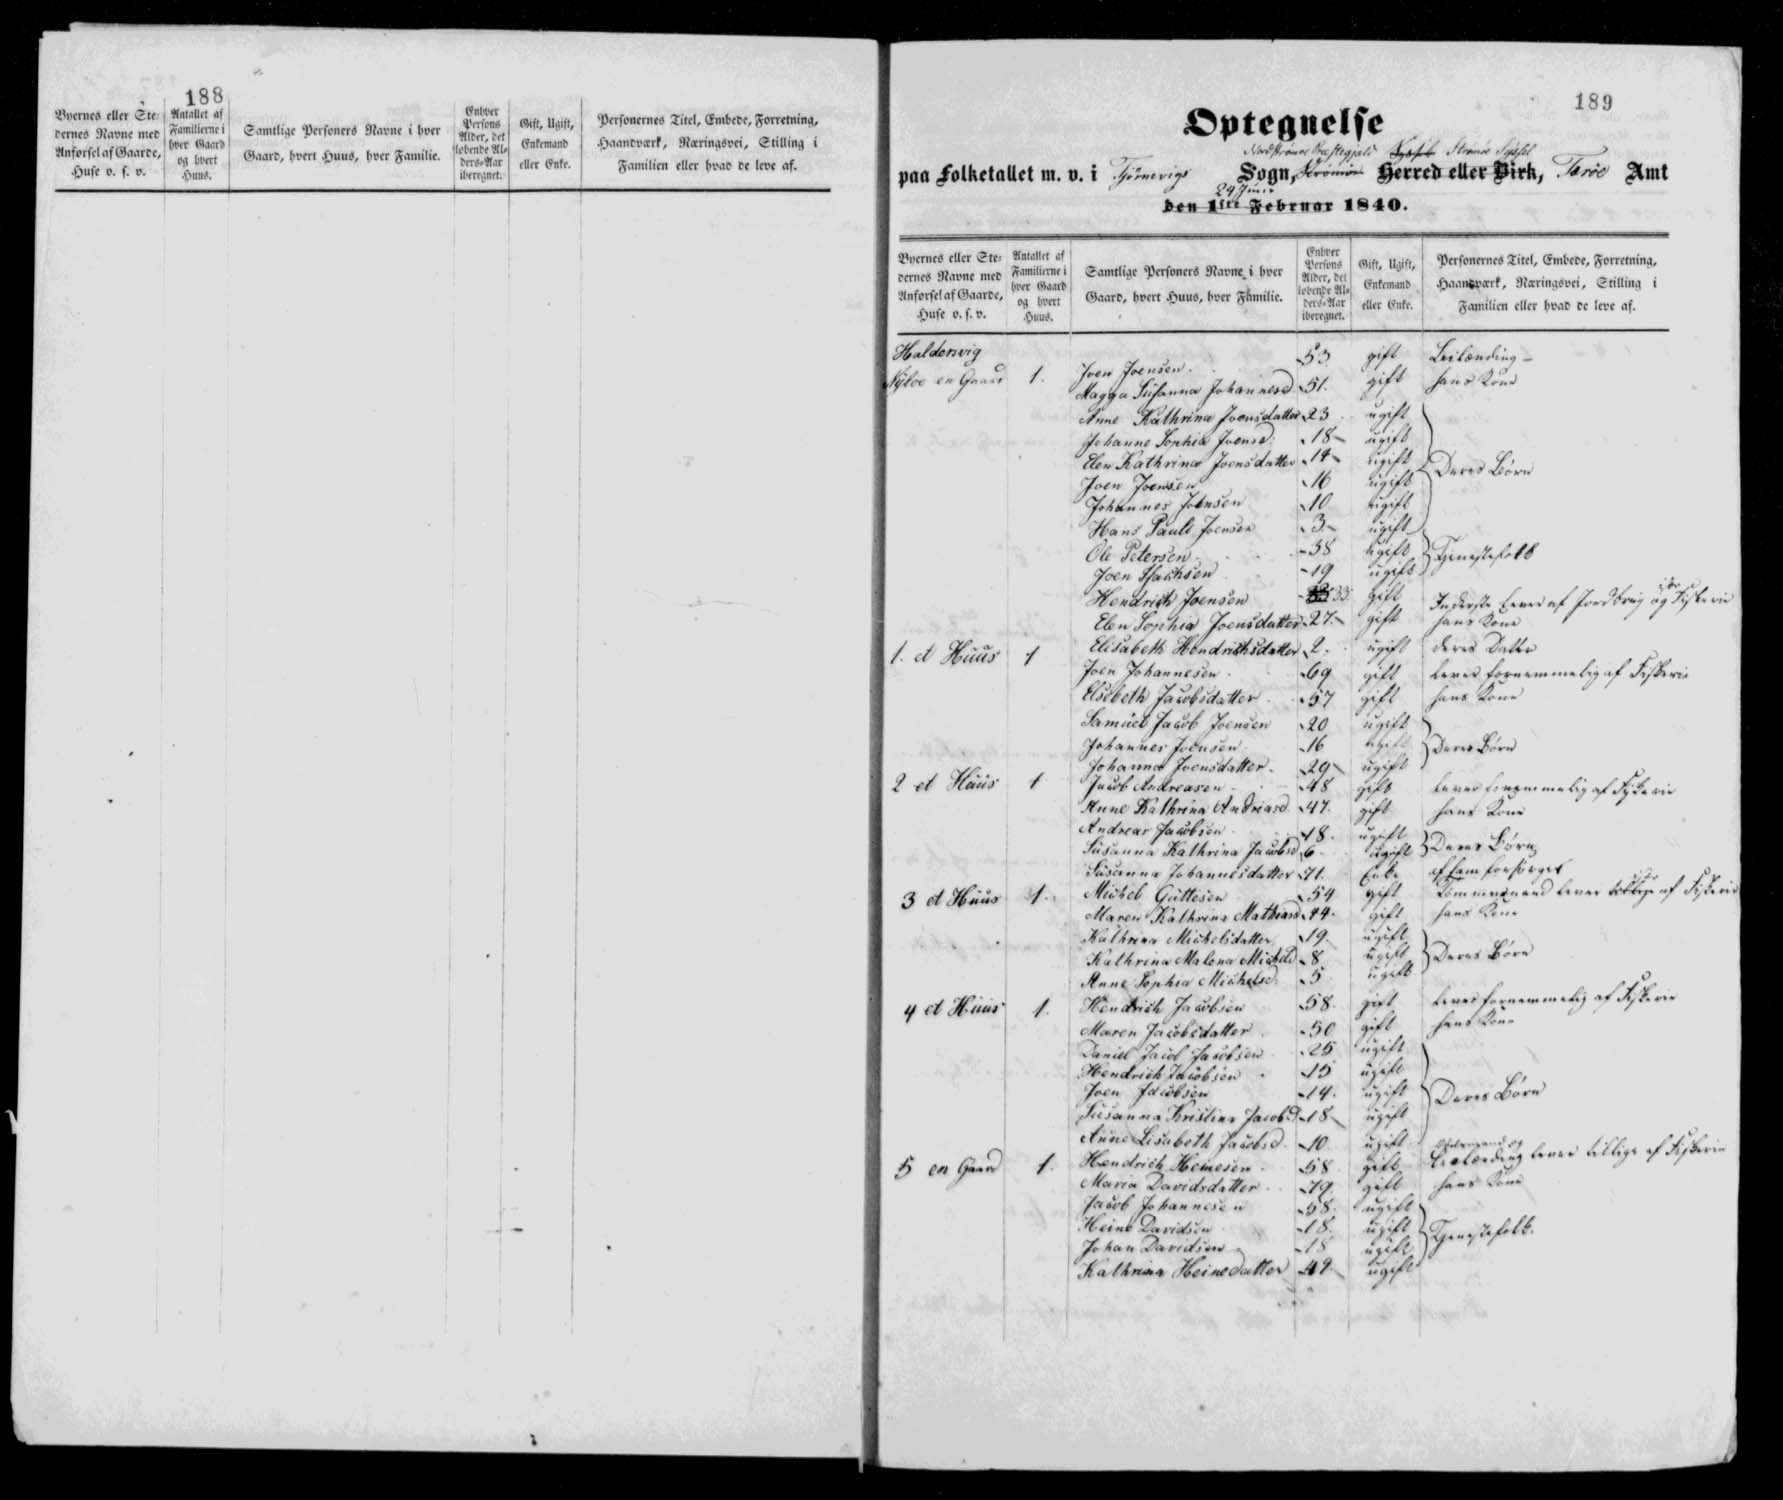 188
Byernes eller Ste-
dernes Navne med
Anførsel af Gaarde,
Huse o. s. v.
Antallet af
Familierne i
hver Gaard
og hvert
Huus.
Samtlige Personers Navne i hver
Gaard, hvert Huus, hver Familie.
Enhver
Persons
Alder, det
løbende Al-
ders-Aar
iberegnet.
Gift, Ugift,
Enkemand
eller Enke.
Personernes Titel, Embede, Forretning,
Haandværk, Næringsvei, Stilling i
Familien eller hvad de leve af.
189
Optegnelse
Nordstrømø Præstegjeld Strømø Syssel
paa Folketallet m. v. i Tjörnevigs Sogn, Strømø Herred eller Birk, Færöe Amt
29 Juni
den 1ste Februar 1840.
Byernes eller Ste-
dernes Navne med
Anførsel af Gaarde,
Huse o. s. v.
Antallet af
Familierne i
hver Gaard
og hvert
Huus.
Samtlige Personers Navne i hver
Gaard, hvert Huus, hver Familie.
Enhver
Persons
Alder, det
løbende Al-
ders-Aar
iberegnet.
Gift, Ugift,
Enkemand
eller Enke.
Personernes Titel, Embede, Forretning,
Haandværk, Næringsvei, Stilling i
Familien eller hvad de leve af.
Haldersvig
en Gaard 1. Joen Joensen 53 gift Leilænding
Magga Susanna Johannesd. 51. gift hans Kone
Anne Kathrina Joensdatter 23 ugift
Johanne Sophia Joensd. 18 ugift
Elen Kathrina Joensdatter 14 ugift Deres Børn
Joen Joensen 16 ugift
Johannes Joensen 10 ugift
Hans Pauli Joensen 3 ugift
Ole Petersen 38 ugift Tjenestefolk
Joen 19 ugift
Hendrich Joensen 33 gift Inderste lever af Jordbrug og Fiskerie
Elen Sophia Joensdatter 27. gift hans Kone
Elisabeth Hendrichsdatter 2. ugift deres Datter
1. et Huus 1 Joen Johannesen 69 gift lever fornemmelig af Fiskerie
Elsebeth Jacobsdatter 57 gift hans Kone
Samuel Jacob Joensen 20 ugift
Johannes Joensen 16 ugift Deres Børn
Johanna Joensdatter 29 ugift
2 et Huus 1 Jacob Andreasen 48 gift lever fornemmelig af Fiskerie
Anne Kathrina Andreasd. 47. gift hans Kone
Andreas Jacobsen 18. ugift Deres Børn
Susanna Kathrina Jacobsd 6 ugift
Susanna Johannesdatter 71. Enke af ham forsørget
3 et Huus 1. Michel Guttesen 54 gift lever af Fiskerie
Maren Kathrina Mathiasd 44. gift hans Kone
Kathrina Michelsdatter 19. ugift
Kathrina Malena Michelsd 8 ugift Deres Børn
Anne Sophia Michelsd. 5 ugift
4 et Huus 1. Hendrich Jacobsen 58. gift lever fornemmelig af Fiskerie
Maren Jacobsdatter 50 gift hans Kone
Daniel Jacob Jacobsen 25 ugift
Hendrich Jacobsen 15 ugift
Joen Jacobsen 14. ugift Deres Børn
Susanna Kristina Jacobsd 18 ugift
Anne Lisabeth Jacobsd. 10 ugift
5 en Gaard 1. Hendrich Heinesen 58. gift og Leilænding lever tillige af Fiskerie
Maria Davidsdatter gift hans Kone
Jacob Johannesen 58. ugift
Heine Davidsen 18. ugift Tjenestefolk.
Johan Davidsen 18 ugift
Kathrina Heinedatter 49. ugift